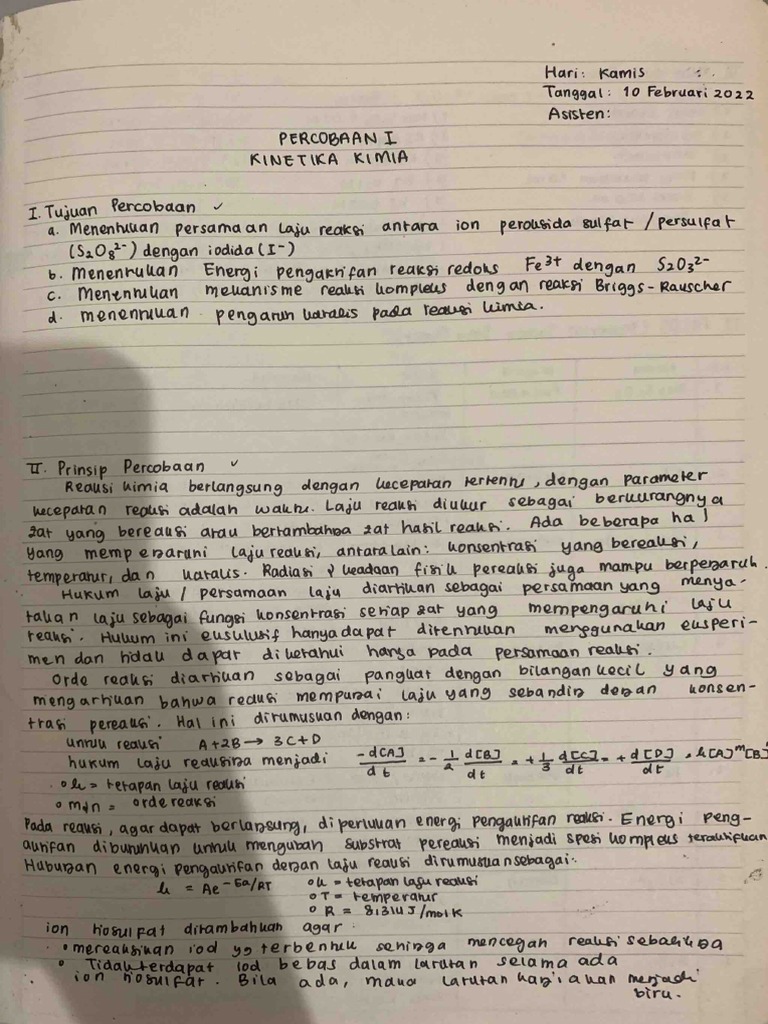 Hari: Kamis
Tanggal: 10 Februari 2022
Asisten:
PERCOBAAN I
KINETIKA KIMIA
I. Tujuan Percobaan ✓
a. Menentukan persamaan laju reaksi antara ion peroksida sulfat / persulfat
(S₂O₈²⁻) dengan iodida (I⁻)
b. Menentukan Energi pengaktifan reaksi redoks Fe³⁺ dengan S₂O₃²⁻
c. Menentukan mekanisme reaksi kompleks dengan reaksi Briggs-Rauscher
d. menentukan pengaruh katalis pada reaksi kimia.
II. Prinsip Percobaan ✓
Reaksi kimia berlangsung dengan kecepatan tertentu, dengan parameter
kecepatan reaksi adalah waktu. Laju reaksi diukur sebagai berkurangnya
zat yang bereaksi atau bertambahnya zat hasil reaksi. Ada beberapa hal
yang mempengaruhi laju reaksi, antara lain: konsentrasi yang bereaksi,
temperatur, dan katalis. Radiasi & keadaan fisik pereaksi juga mampu berpengaruh.
Hukum laju / persamaan laju diartikan sebagai persamaan yang menya-
takan laju sebagai fungsi konsentrasi setiap zat yang mempengaruhi laju
reaksi. Hukum ini eksklusif hanya dapat ditentukan menggunakan eksperi-
men dan tidak dapat diketahui hanya pada persamaan reaksi.
Orde reaksi diartikan sebagai pangkat dengan bilangan kecil yang
mengartikan bahwa reaksi mempunyai laju yang sebanding dengan konsen-
trasi pereaksi. Hal ini dirumuskan dengan:
untuk reaksi A + 2B → 3C + D
hukum laju reaksinya menjadi -d[A]/dt = - 1/2 d[B]/dt = + 1/3 d[C]/dt = + d[D]/dt = k[A]ᵐ[B]
∘ k = tetapan laju reaksi
∘ m,n = orde reaksi
Pada reaksi, agar dapat berlangsung, diperlukan energi pengaktifan reaksi. Energi peng-
aktifan dibutuhkan untuk mengubah substrat pereaksi menjadi spesi kompleks teraktifkan
Hubungan energi pengaktifan dengan laju reaksi dirumuskan sebagai:
k = Ae^-Ea/RT ∘ k = tetapan laju reaksi
∘ T = temperatur
∘ R = 8,314 J/mol K
ion tiosulfat ditambahkan agar:
∘ mereaksikan iod yg terbentuk sehingga mencegah reaksi sebaliknya
∘ Tidak terdapat iod bebas dalam larutan selama ada
ion tiosulfat. Bila ada, maka larutan kanji akan menjadi
biru.